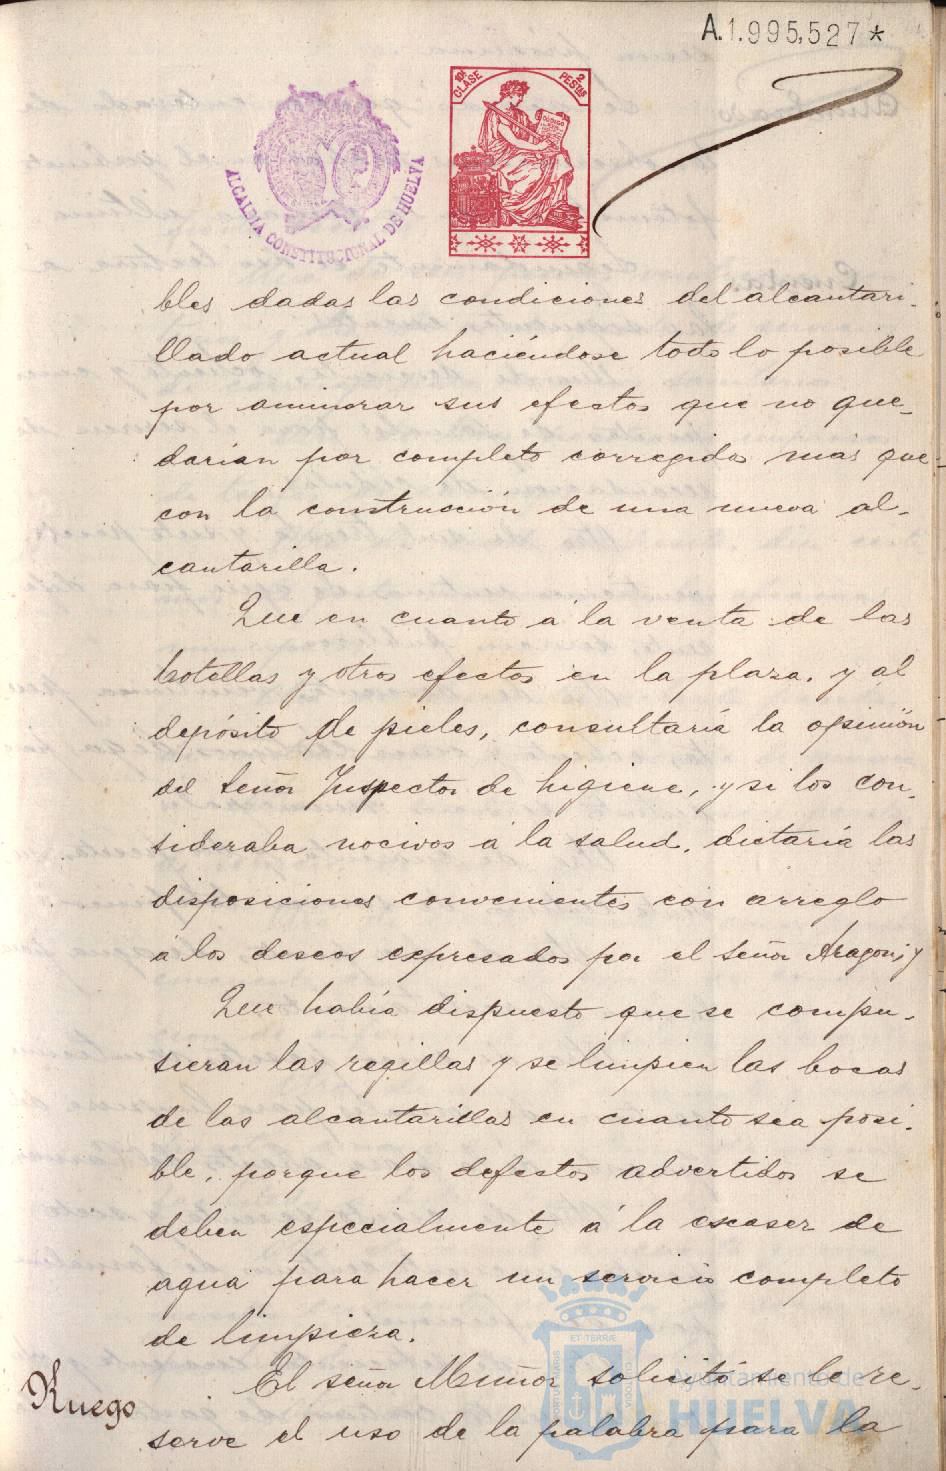 A.1.995,527*
10ª CLASE 2 PESETAS
ALCALDIA CONSTITUCIONAL DE HUELVA
bles dadas las condiciones del alcantari-
llado actual haciéndose todo lo posible
por aminorar sus efectos que no que-
darían por completo corregidos más que
con la construcción de una nueva al-
cantarilla.
Que en cuanto á la venta de las
botellas y otros efectos en la plaza, y al
depósito de pieles, consultaría la opinión
del Señor Inspector de higiene, y si los con-
sideraba nocivos á la salud, dictaría las
disposiciones convenientes con arreglo
á los deseos expresados por el Señor Aragon; y
Que había dispuesto que se compu-
sieran las regillas y se limpien las bocas
de las alcantarillas en cuanto sea posi-
ble, porque los defectos advertidos se
deben especialmente á la escasez de
agua para hacer un servicio completo
de limpieza.
Ruego
El señor Muñoz solicitó se le re-
serve el uso de la palabra para la
Ayuntamiento de
HUELVA